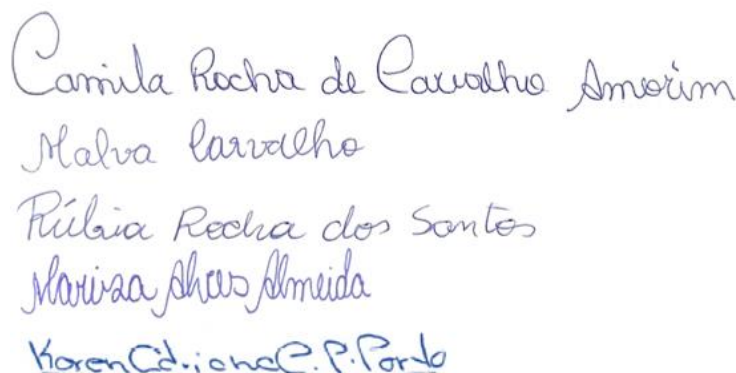 Camila Rocha de Carvalho Amorim
Malva Carvalho
Rúbia Rocha dos Santos
Mariza Alves Almeida
Karen C. P.